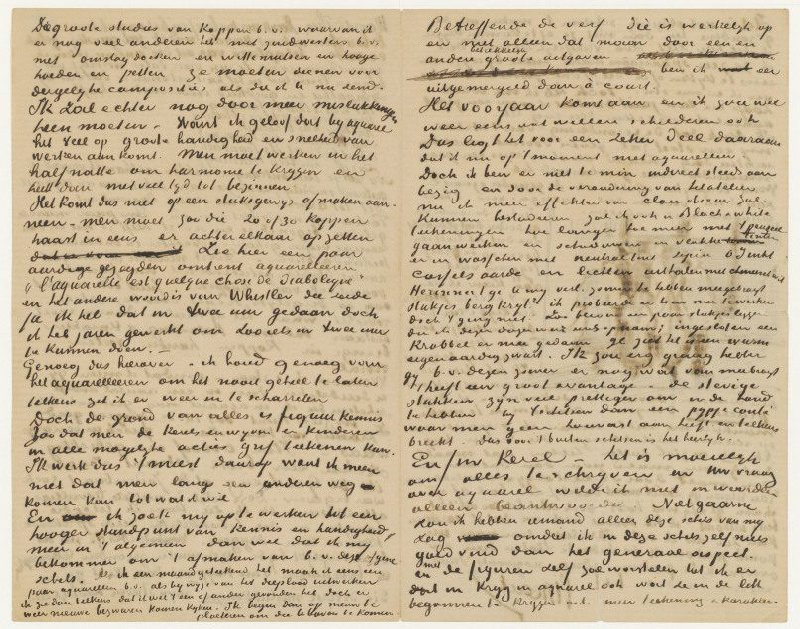 De groote studies van koppen b.v. waarvan ik
er nog veel anderen heb met zuidwesters b.v.
met omslagdoeken en witte mutsen en hooge
hoeden en petten ze moeten dienen voor
dergelijke composities als die ik U nu zend.
Ik zal echter nog door meer mislukkingen
heen moeten – want ik geloof dat by aquarel
het veel op groote handigheid en snelheid van
werken aankomt. Men moet werken in het
half natte om harmonie te krygen en
heeft dan niet veel tyd tot bezinnen
Het komt dus niet op een stuksgewys afmaken aan.
neen – men moet zoo die 20 of 30 koppen
haast in eens en achter elkaar opzetten
Zie hier een paar
aardige gezegden omtrent aquarelleeren.
"l'aquarelle est quelque chose de diabolique"
en het andere woord is van Whistler die zeide
ja ik heb dat in twee uur gedaan doch
ik heb jaren gewerkt om zoo iets in twee uur
te kunnen doen. –
Genoeg dus hierover – ik houd genoeg van
het aquarelleeren om het nooit geheel te laten
telkens zet ik er weer in te scharrelen
Doch de grond van alles is figuurkennis
Zoo dat men de kerels en wyven en kinderen
in alle mogelyke acties grif teekenen kan.
Ik werk dus 't meest daarop want ik meen
niet dat men langs een anderen weg
komen kan tot wat ik wil
En ik zoek my op te werken tot een
hooger standpunt van kennis en handigheid
meer in 't algemeen dan wel dat ik my
bekommer om 't afmaken van b.v. deze of gene
schets. Als ik een maand geteekend heb maak ik eens een
paar aquarellen b.v. als by wyze van het dieplood uitwerpen
ik zie dan telkens dat ik wel 't een of ander gevonden heb doch er
weer nieuwe bezwaren komen kyken. Ik begin dan op nieuw te
ploeteren om die te boven te komen
Betreffende de verf die is werkelyk op
en niet alleen dat maar door een en
andere betrekkelyk groote uitgaven
ben ik er
uitgemergeld dan à court.
Het voorjaar komt aan en ik zou wel
weer eens wat willen schilderen ook
Dus ligt het voor een zeker deel daaraan
dat ik nu op 't moment niet aquarelleer
Doch ik ben er niet te min indirect steeds aan
bezig en door de verandering van het atelier
nu ik meer effekten van clair obscur zal
kunnen bestuderen zal ik ook in Black & white
teekeningen hoe langer hoe meer met 't penseel
gaan werken en schaduwen in
er in wasschen met neutraltint sepia O I inkt
casselsaarde en lichten uithalen met chineeschwit
Herinnert ge U my verl. zomer te hebben meegebragt
stukjes bergkryt? ik probeerde er toen mee te werken
doch 't ging niet. Zoo bleven een paar stukjes liggen
die ik dezer dagen weer eens opnam; ingesloten een
krabbel er mee gedaan ge ziet het is een warm
eigenaardig zwart. Ik zou erg graag hebben
gy b.v. dezen zomer er nog wat van meebragt
't heeft een groot avantage – de stevige
stukken zyn veel prettiger om in de hand
te hebben by 't schetsen dan een pypje conté
waar men geen houvast aan heeft en telkens
breekt. Dus voor 't buiten schetsen is het heerlyk.
Enfin Kerel – het is moeielyk
om alles te schryven en Uw vraag
over aquarel wilde ik niet in woorden
alleen beantwoorden Niet gaarne
zou ik hebben iemand alleen deze schets van my
zag omdat ik in deze schets zelf niets
goed vind dan het generaal aspect.
en met de figuren zelf zoo worstelen tot ik er
in kryg in aquarel ook wat er in de lith
begonnen te krygen – met meer teekening & karakter.